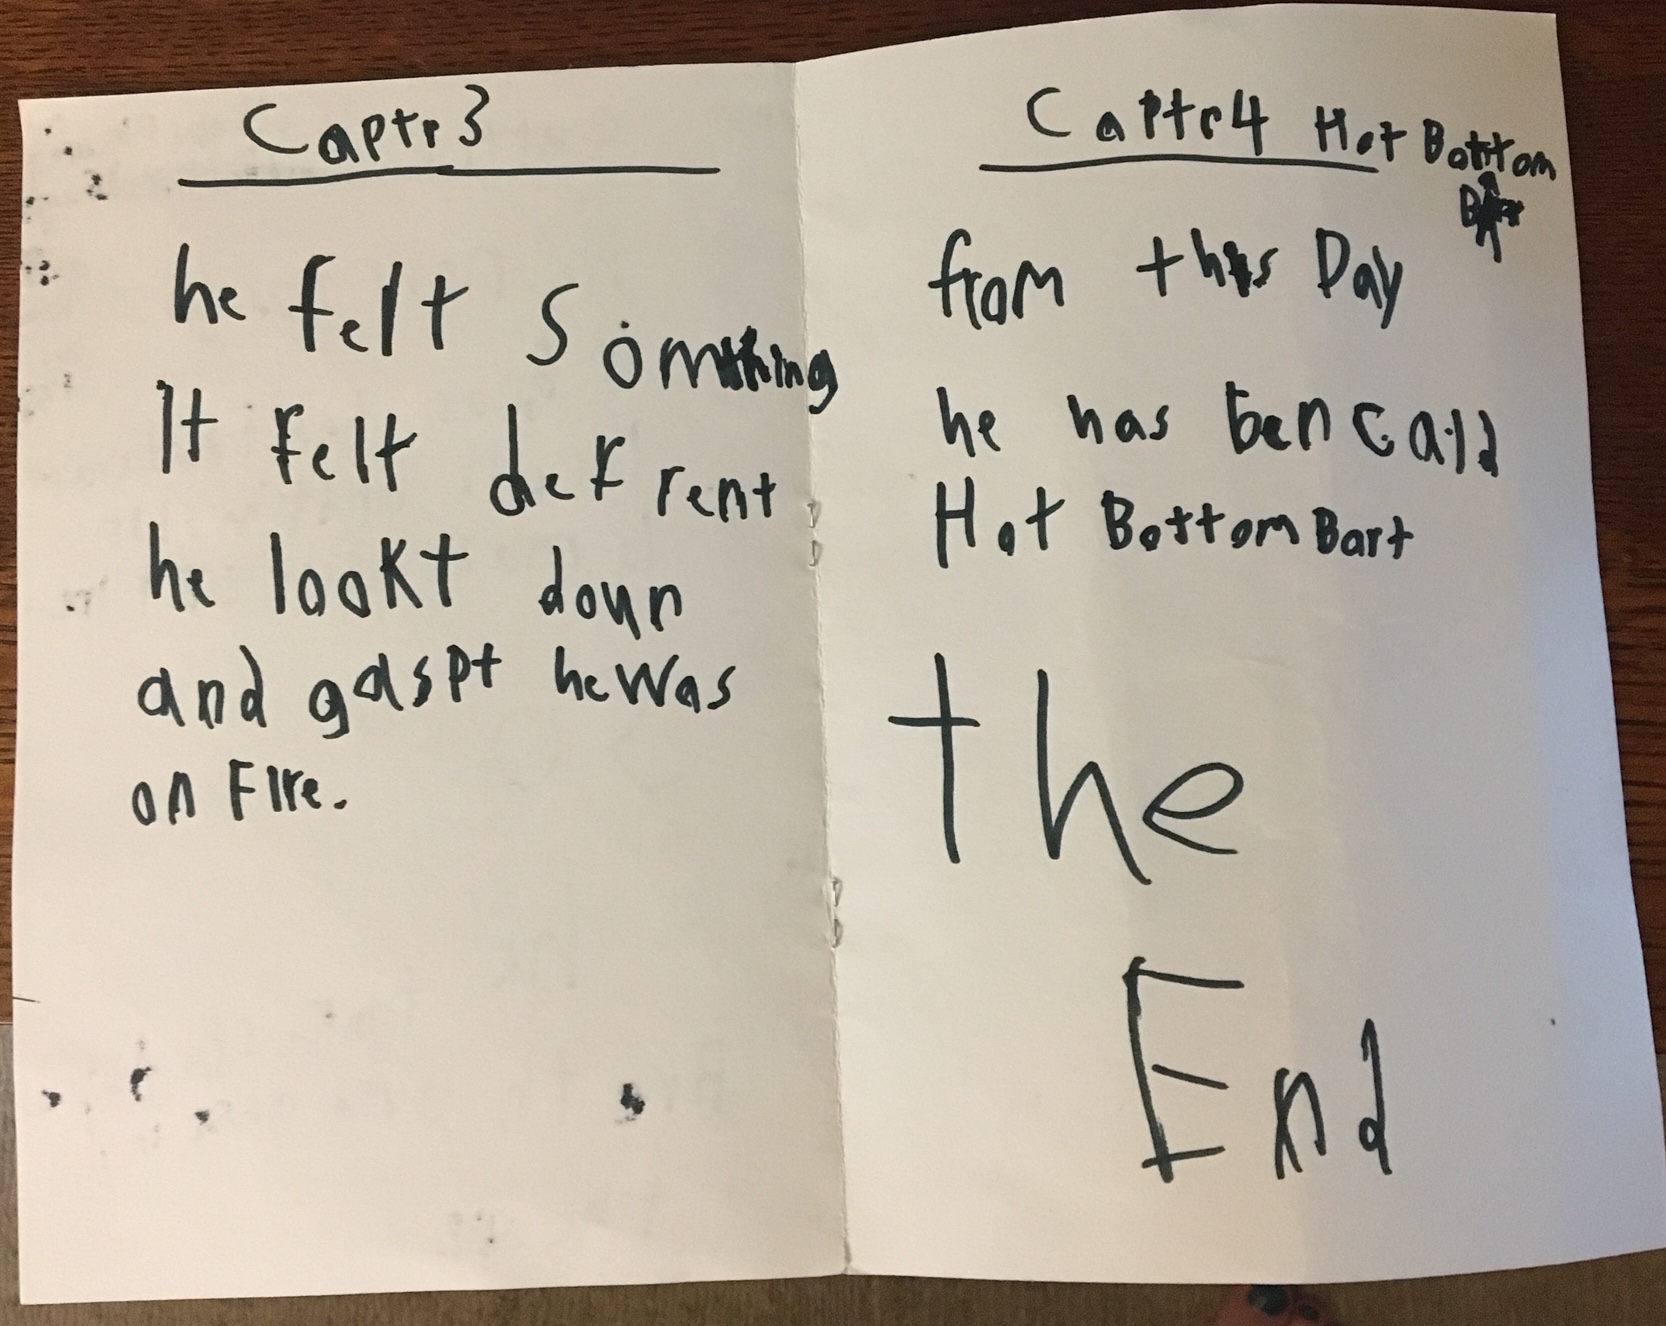 Captr 3
he felt somthing
It felt defrent
he lookt doun
and gaspt he was
on Fire.
Captr 4 Hot Bottom
from this Day
he has ben calld
Hot Bottom Bart
the
End